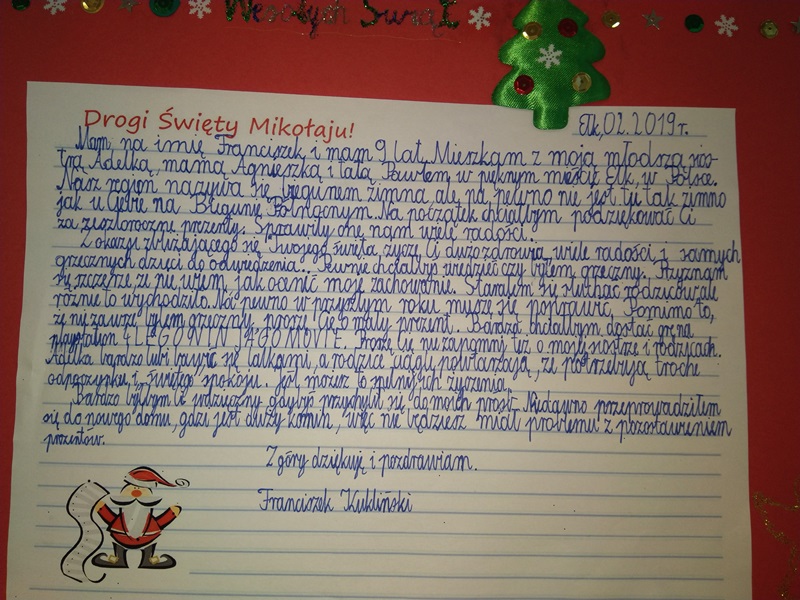 Wesołych Świąt
Ełk, 02.2019r.
Drogi Święty Mikołaju!
Mam na imię Franciszek i mam 9 lat. Mieszkam z moją młodszą sios-
trą Adelką, mamą Agnieszką i tatą Pawłem w pięknym mieście Ełk, w Polsce.
Nasz rejon nazywa się biegunem zimna, ale na pewno nie jest tu tak zimno
jak u Ciebie na Biegunie Północnym. Na początek chciałbym podziękować Ci
za zeszłoroczne prezenty. Sprawiły one nam wiele radości.
Z okazji zbliżającego się Twojego święta, życzę Ci dużo zdrowia, wiele radości i samych
grzecznych dzieci do odwiedzenia... Pewnie chciałbyś wiedzieć czy byłem grzeczny. Przyznam
się szczerze że nie wiem, jak ocenić moje zachowanie. Starałem się słuchać rodziców ale
różnie to wychodziło. Na pewno w przyszłym roku muszę się poprawić. Pomimo to,
że nie zawsze byłem grzeczny, proszę Cię o mały prezent. Bardzo chciałbym dostać grę na
playstation 4 LEGO NINJAGO MOVIE. Proszę Cię nie zapomnij też o mojej siostrze i rodzicach.
Adelka bardzo lubi bawić się lalkami, a rodzice ciągle powtarzają, że potrzebują trochę
odpoczynku i świętego spokoju. Jeśli możesz to spełnij ich życzenia.
Bardzo byłbym Ci wdzięczny gdybyś przychylił się do moich próśb. Niedawno przeprowadziłem
się do nowego domu, gdzi jest duży komin, więc nie będziesz miał problemu z pozostawieniem
prezentów.
Z góry dziękuję i pozdrawiam.
Franciszek Kukliński